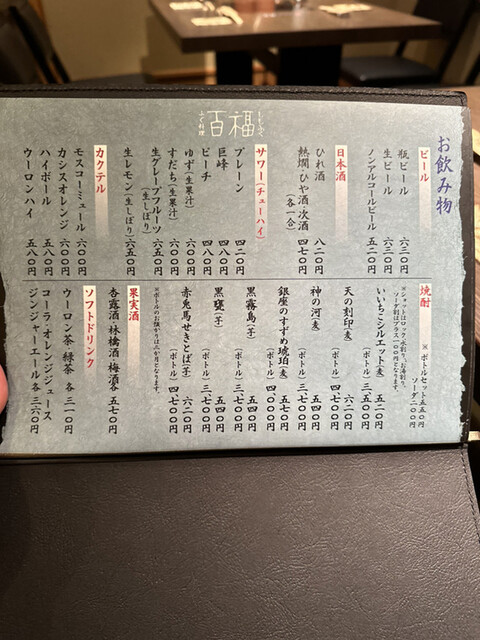 ふぐ料理 百福 ももふく
お飲み物
ビール
瓶ビール 六三〇円
生ビール 六二〇円
ノンアルコールビール 五二〇円
日本酒
ひれ酒 八二〇円
熱燗 ひや酒 次酒(各一合) 四七〇円
サワー(チューハイ)
プレーン 四二〇円
巨峰 四八〇円
ピーチ 四八〇円
ゆず(生果汁) 六〇〇円
すだち(生果汁) 六〇〇円
生グレープフルーツ(生しぼり) 六五〇円
生レモン(生しぼり) 六五〇円
カクテル
モスコーミュール 六〇〇円
カシスオレンジ 六〇〇円
ハイボール 五八〇円
ウーロンハイ 五八〇円
焼酎
※ボトルセット五五〇円
ソーダ二〇〇円
※ショットはロック、水割り、お湯割り。
ソーダ割はプラス一〇〇円となります。
いいちこシルエット(麦) 五二〇円
(ボトル) 三、五〇〇円
天の刻印(麦) 六二〇円
(ボトル) 四、七〇〇円
神の河(麦) 五四〇円
(ボトル) 三、七〇〇円
銀座のすずめ琥珀(麦) 五七〇円
(ボトル) 四、〇〇〇円
黒霧島(芋) 五四〇円
(ボトル) 三、七〇〇円
黒甕(芋) 五四〇円
(ボトル) 三、七〇〇円
赤兎馬せきとば(芋) 六二〇円
(ボトル) 四、七〇〇円
※ボトルのお預かりは三か月となります。
果実酒
杏露酒・林檎酒・梅酒各 五七〇円
ソフトドリンク
ウーロン茶 緑茶 各 三一〇円
コーラ・オレンジジュース
ジンジャーエール各 三六〇円